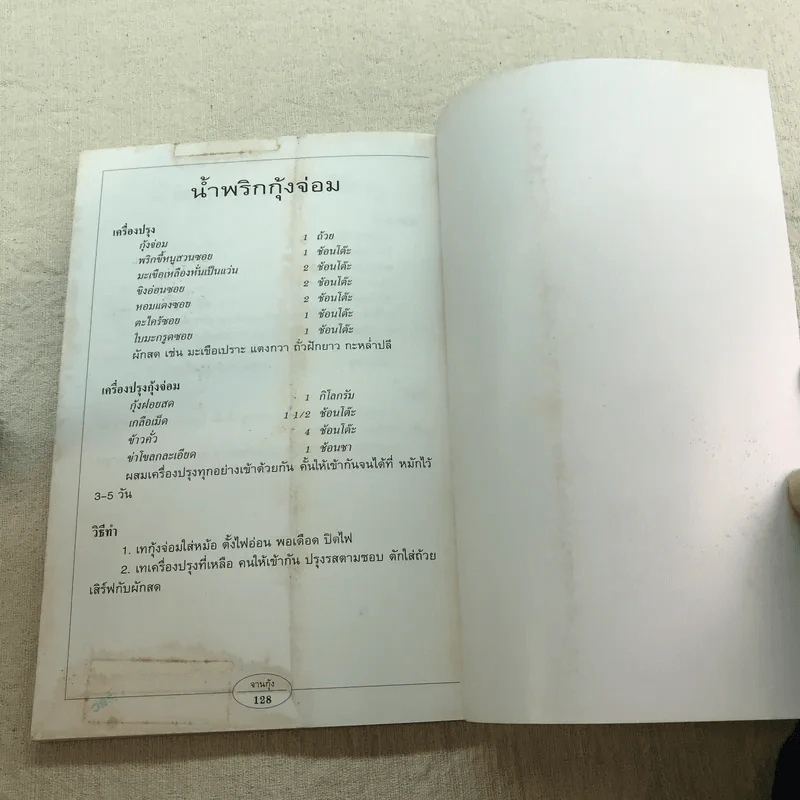 น้ำพริกกุ้งจ่อม
เครื่องปรุง
กุ้งจ่อม 1 ถ้วย
พริกขี้หนูสวนซอย 1 ช้อนโต๊ะ
มะเขือเหลืองหั่นเป็นแว่น 2 ช้อนโต๊ะ
ขิงอ่อนซอย 2 ช้อนโต๊ะ
หอมแดงซอย 2 ช้อนโต๊ะ
ตะไคร้ซอย 1 ช้อนโต๊ะ
ใบมะกรูดซอย 1 ช้อนโต๊ะ
ผักสด เช่น มะเขือเปราะ แตงกวา ถั่วฝักยาว กะหล่ำปลี
เครื่องปรุงกุ้งจ่อม
กุ้งฝอยสด 1 กิโลกรัม
เกลือเม็ด 1 1/2 ช้อนโต๊ะ
ข้าวคั่ว 4 ช้อนโต๊ะ
ข่าโขลกละเอียด 1 ช้อนชา
ผสมเครื่องปรุงทุกอย่างเข้าด้วยกัน คั้นให้เข้ากันจนได้ที่ หมักไว้
3-5 วัน
วิธีทำ
1. เทกุ้งจ่อมใส่หม้อ ตั้งไฟอ่อน พอเดือด ปิดไฟ
2. เทเครื่องปรุงที่เหลือ คนให้เข้ากัน ปรุงรสตามชอบ ตักใส่ถ้วย
เสิร์ฟกับผักสด
จานกุ้ง
128